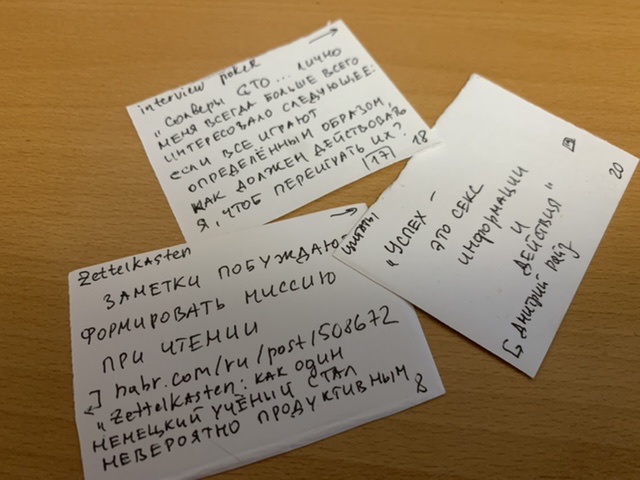 interview poker →
"Солверы GTO... лично
меня всегда больше всего
интересовало следующее:
если все играют
определённым образом,
как должен действовать
я, чтоб переиграть их?
17
18
цитаты
"Успех -
это секс
информации
и
действия"
Дмитрий
20
Zettelkasten →
Заметки побуждают
формировать миссию
при чтении
habr.com/ru/post/508672
"Zettelkasten: как один
немецкий учёный стал
невероятно продуктивным
8